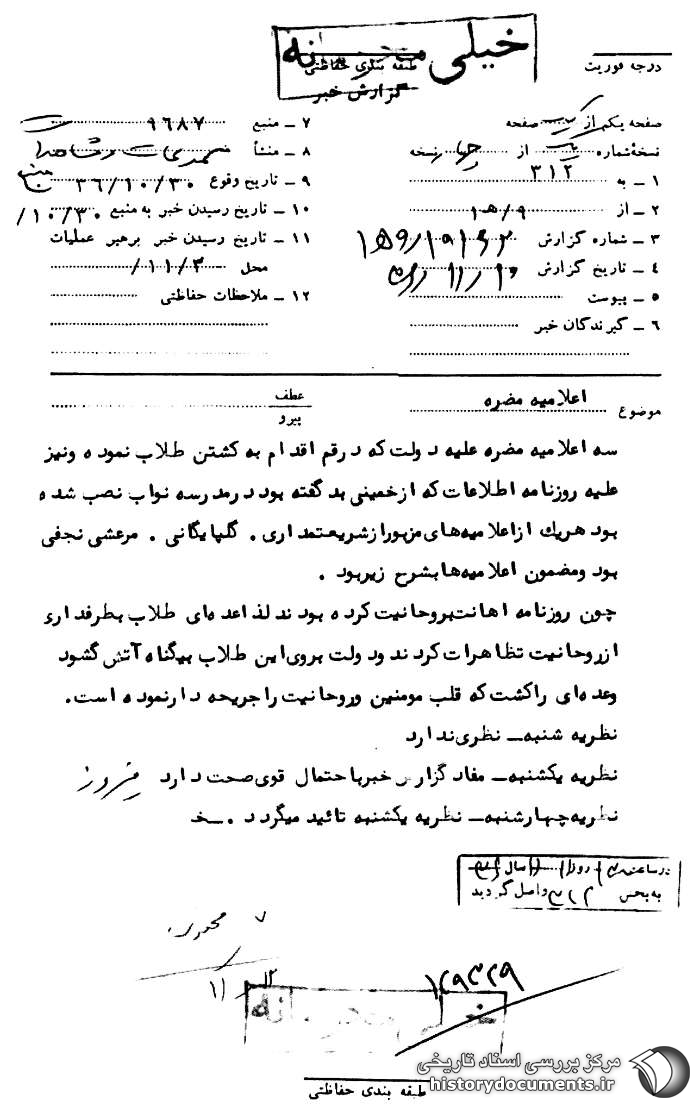 خیلی محرمانه
طبقه بندی حفاظتی
گزارش خبر
درجه فوریت
صفحه یکم از صفحه
نسخهٔ شماره از چهار نسخه
۱ ـ به ۳۱۲
۲ ـ از ۹/ه‍ ۱
۳ ـ شماره گزارش
۴ ـ تاریخ گزارش
۵ ـ پیوست
۶ ـ گیرندگان خبر
۷ ـ منبع ۹۶۸۷
۸ ـ منشأ
۹ ـ تاریخ وقوع ۳۶/۱۰/۳۰
۱۰ ـ تاریخ رسیدن خبر به منبع ۱۰/۳۰/
۱۱ ـ تاریخ رسیدن خبر برهبر عملیات
محل ۱۱/۳/
۱۲ ـ ملاحظات حفاظتی
موضوع اعلامیه مضره
عطف
پیرو
سه اعلامیه مضره علیه دولت که در قم اقدام به کشتن طلاب نموده ونیز
علیه روزنامه اطلاعات که از خمینی بد گفته بود در مدرسه نواب نصب شده
بود هریك از اعلامیه‌های مزبور از شریعتمداری . گلپایگانی . مرعشی نجفی
بود ومضمون اعلامیه‌ها بشرح زیر بود .
چون روزنامه اهانت بروحانیت کرده بودند لذا عده‌ای طلاب بطرفداری
از روحانیت تظاهرات کردند ودولت بروی این طلاب بیگناه آتش گشود
وعده‌ای را کشت که قلب مومنین وروحانیت را جریحه دار نموده است.
نظریه شنبه ـ نظری ندارد
نظریه یکشنبه ـ مفاد گزارش خبر با احتمال قوی صحت دارد
نظریه چهارشنبه ـ نظریه یکشنبه تائید میگردد . ـ خ
در ساعت روز سال
به بخش ۳۱۲ واصل گردید
۱۲
۱۱
۱۴۹۳۲۹
خیلی محرمانه
طبقه بندی حفاظتی
مرکز بررسی اسناد تاریخی
historydocuments.ir